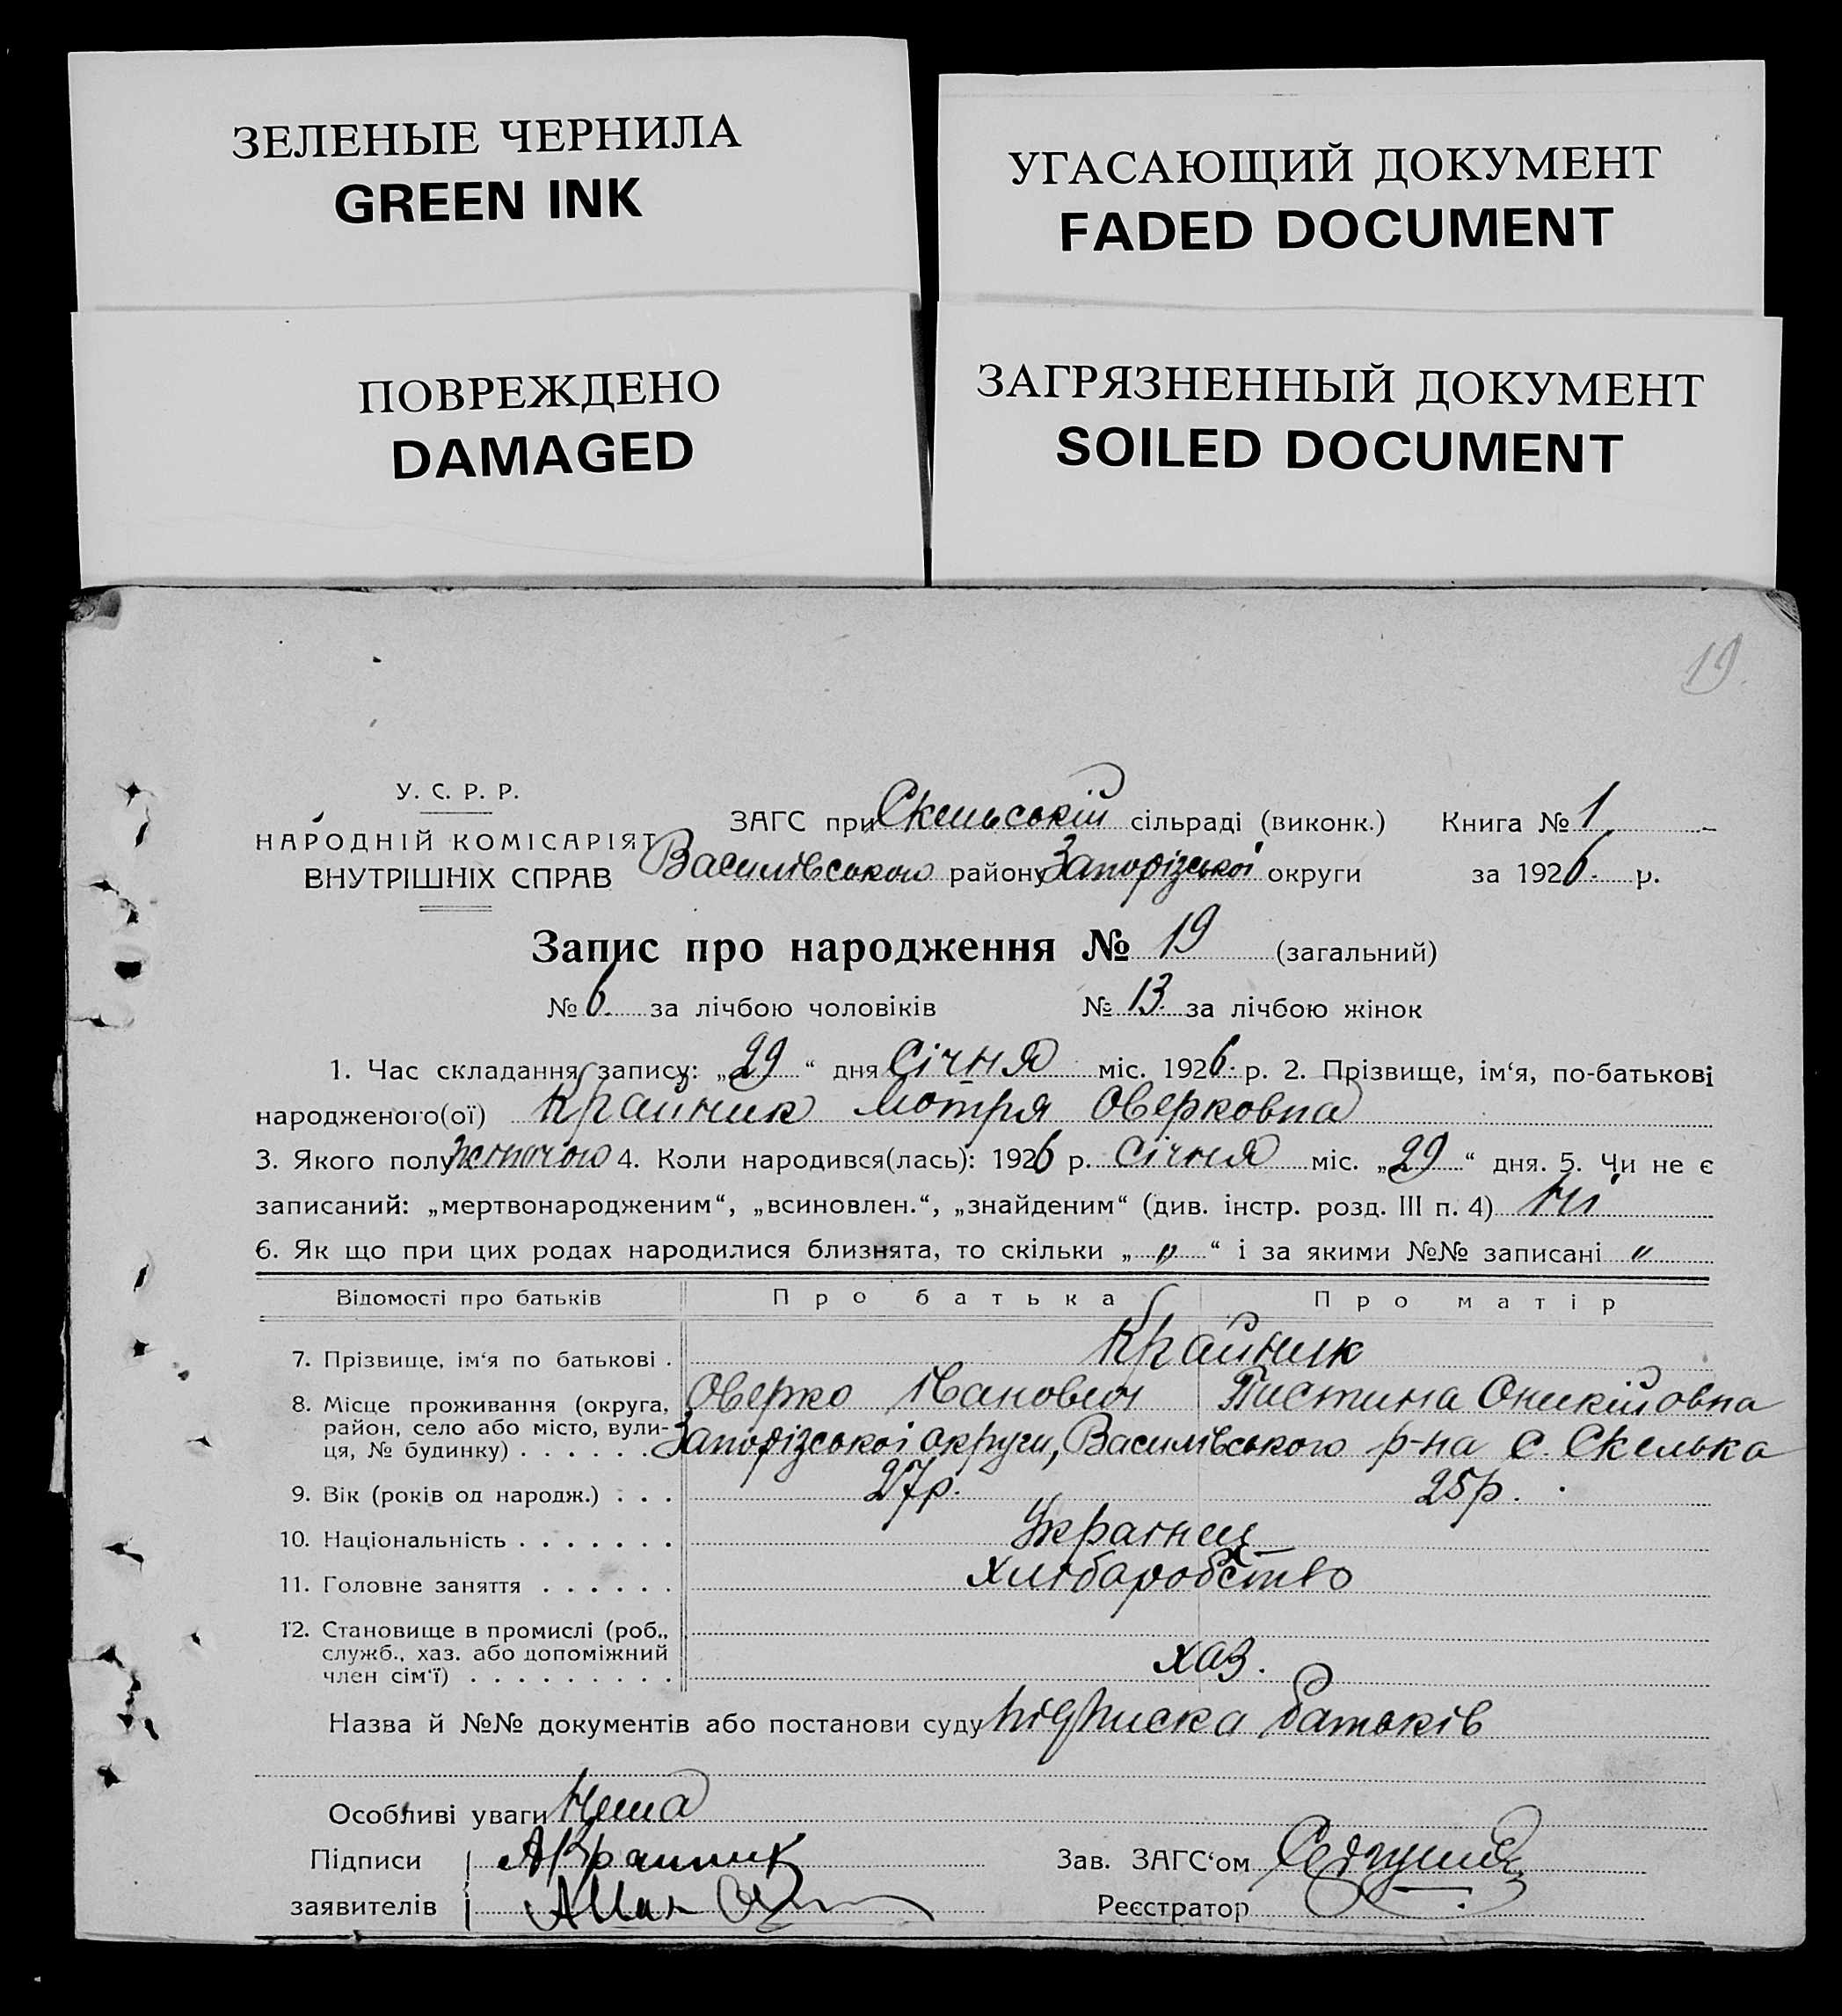 ЗЕЛЕНЫЕ ЧЕРНИЛА
GREEN INK
УГАСАЮЩИЙ ДОКУМЕНТ
FADED DOCUMENT
ПОВРЕЖДЕНО
DAMAGED
ЗАГРЯЗНЕННЫЙ ДОКУМЕНТ
SOILED DOCUMENT
19.
У. С. Р. Р.
НАРОДНІЙ КОМІСАРІЯТ
ВНУТРІШНІХ СПРАВ
ЗАГС при Скельській сільраді (виконк.) Книга № 1
Василівського району Запорізської округи за 1926. р.
Запис про народження № 19 (загальний)
№ 6. за лічбою чоловіків № 13. за лічбою жінок
1. Час складання запису: „29“ дня Січня міс. 1926. р. 2. Прізвище, ім‘я, по-батькові
народженого(ої) Крайник Мотря Оверковна
3. Якого полу жіночого 4. Коли народився(лась): 1926 р. Січня міс. „29“ дня. 5. Чи не є
записаний: „мертвонародженим“, „всиновлен.“, „знайденим“ (див. інстр. розд. III п. 4) Ні
6. Як що при цих родах народилися близнята, то скільки „ „ “ і за якими №№ записані „
Відомості про батьків Про батька Про матір
7. Прізвище, ім‘я по батькові . Крайник
Оверко Іванович Пистина Оникійовна
8. Місце проживання (округа,
район, село або місто, вули-
ця, № будинку) . . . . . . Запорізської округи, Василівського р-на с. Скелька
9. Вік (років од народж.) . . . 27р. 25р.
10. Національність . . . . . . . Украінец
11. Головне заняття . . . . . . хлібаробство
12. Становище в промислі (роб.,
служб., хаз. або допоміжний
член сім‘ї) . . . . . . . . . хаз.
Назва й №№ документів або постанови суду підписка батьків
Особливі уваги Нема
Підписи А Крайник Зав. ЗАГС‘ом
заявителів Реєстратор